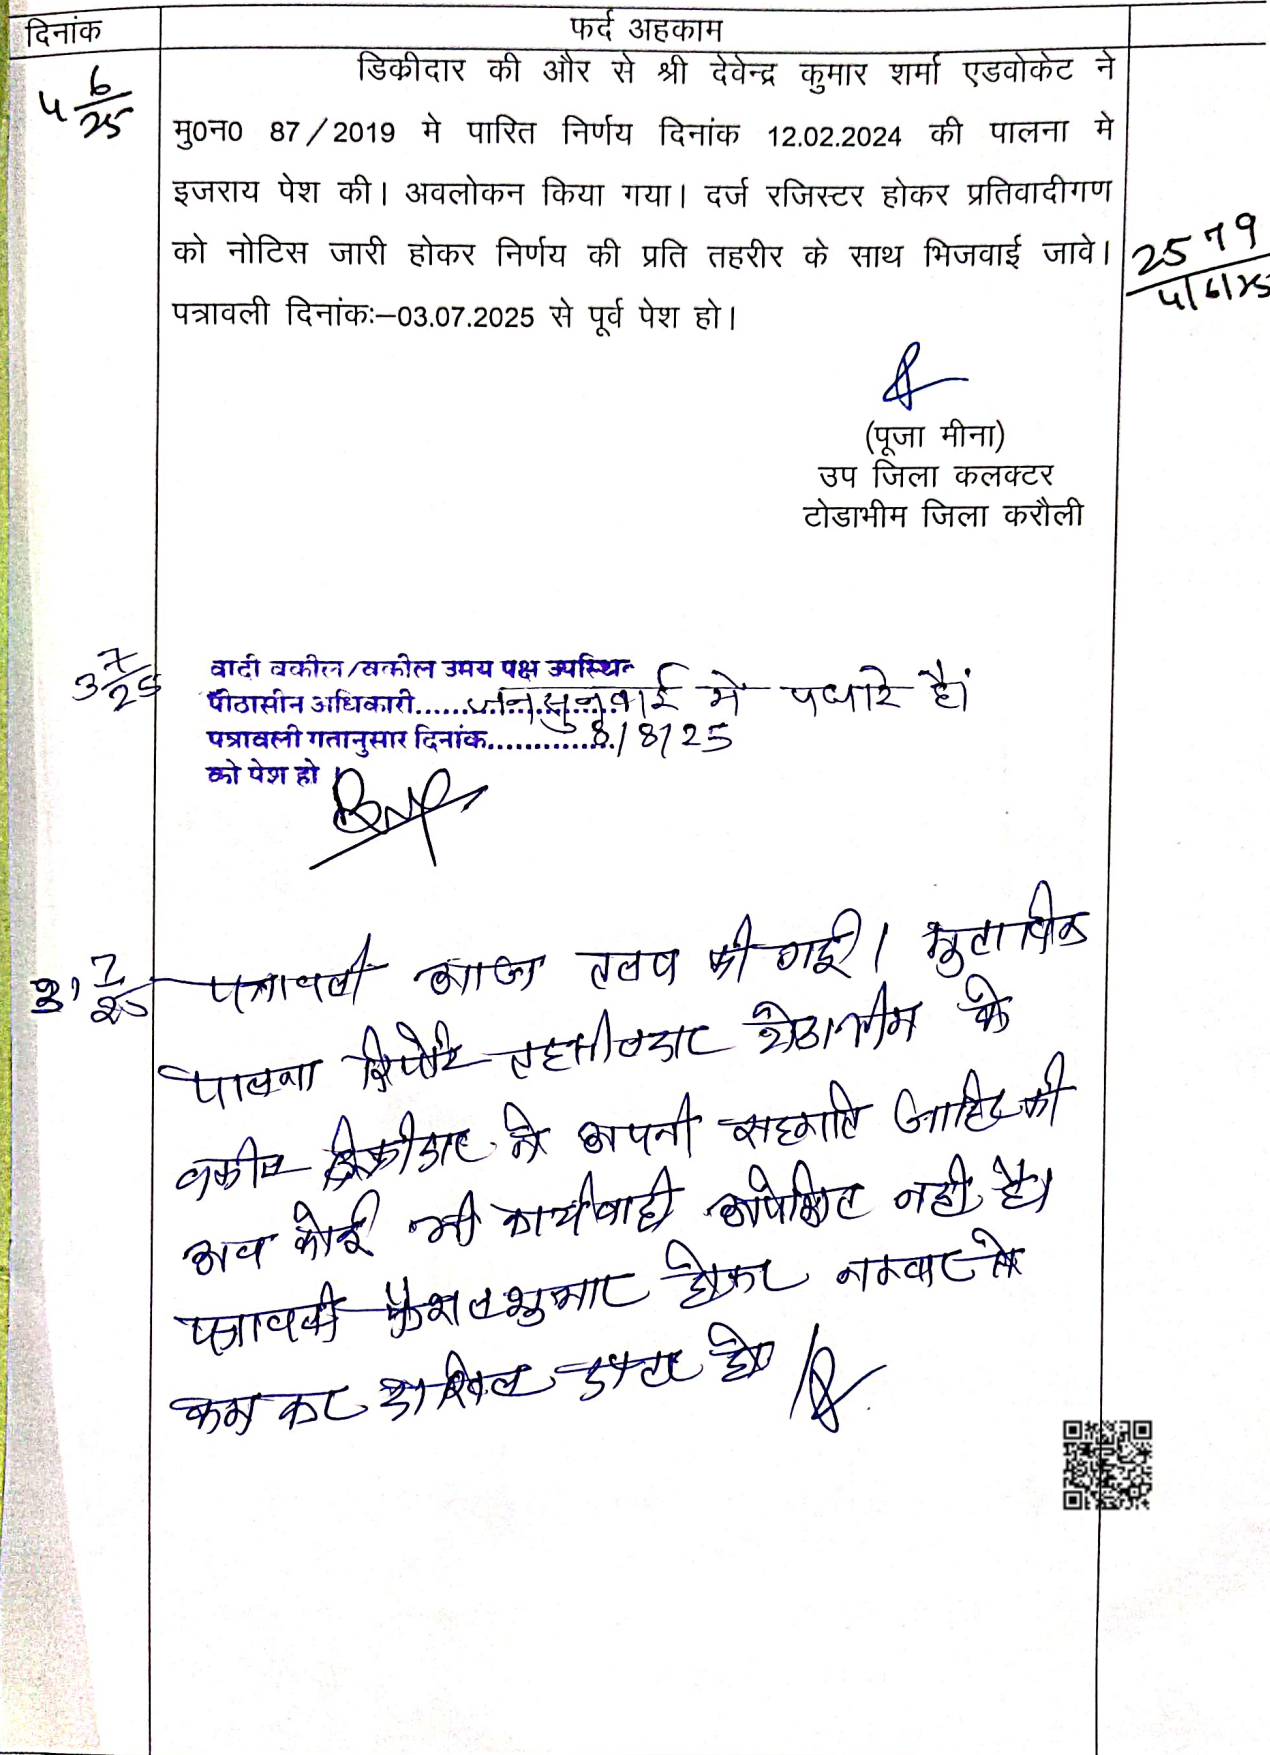 दिनांक
फर्द अहकाम
4 6/25
डिकीदार की और से श्री देवेन्द्र कुमार शर्मा एडवोकेट ने
मु0न0 87/2019 मे पारित निर्णय दिनांक 12.02.2024 की पालना मे
इजराय पेश की। अवलोकन किया गया। दर्ज रजिस्टर होकर प्रतिवादीगण
को नोटिस जारी होकर निर्णय की प्रति तहरीर के साथ भिजवाई जावे।
2579
4/6/25
पत्रावली दिनांकः–03.07.2025 से पूर्व पेश हो।
(पूजा मीना)
उप जिला कलक्टर
टोडाभीम जिला करौली
3 7/25
वादी वकील/वकील उभय पक्ष उपस्थित
पीठासीन अधिकारी.......जनसुनवाई में पधारे है।
पत्रावली गतानुसार दिनांक..............8/8/25
को पेश हो।
31 7/25
पत्रावली आज तलब की गई। मुताबिक
पालना रिपोर्ट तहसीलदार टोडाभीम के
वकील डिक्रीदार ने अपनी सहमति जाहिर की
अब कोई भी कार्यवाही अपेक्षित नही है।
पत्रावली फैशल शुमार होकर नम्बर से
कम कर दाखिल दफ्तर हो